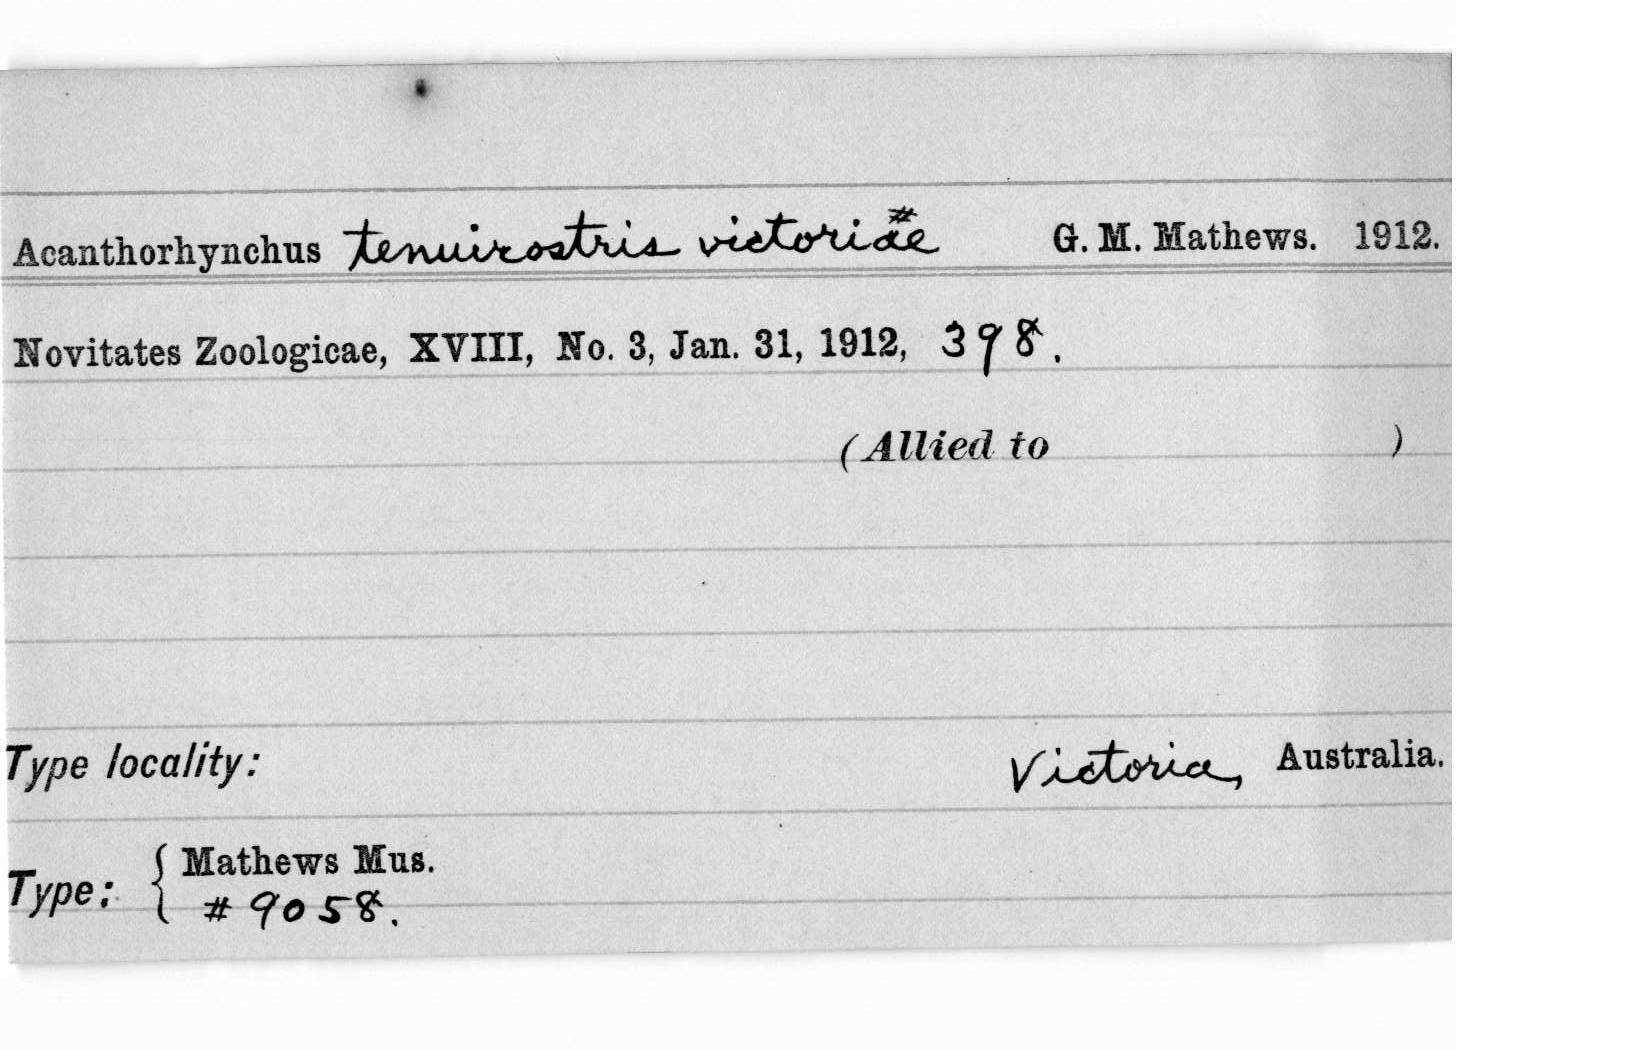 #
Acanthorhynchus tenuirostris victoriae G. M. Mathews. 1912.
Novitates Zoologicae, XVIII, No. 3, Jan. 31, 1912, 398.
(Allied to )
Type locality: Victoria, Australia.
Type: { Mathews Mus.
# 9058.